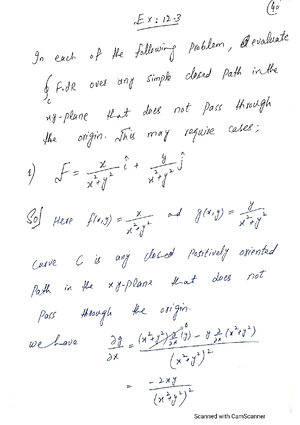 Ex: 12.3
40
In each of the following problem, evaluate
∮_C F.dR over any simple closed Path in the
xy-plane that does not pass through
the origin. This may require cases;
1) F = x/(x²+y²) î + y/(x²+y²) ĵ
Sol Here f(x,y) = x/(x²+y²) and g(x,y) = y/(x²+y²)
Curve C is any closed Positively oriented
Path in the xy-plane that does not
Pass through the origin.
we have ∂g/∂x = ((x²+y²) ∂/∂x (y) - y ∂/∂x (x²+y²))/(x²+y²)²
= -2xy/(x²+y²)²
Scanned with CamScanner